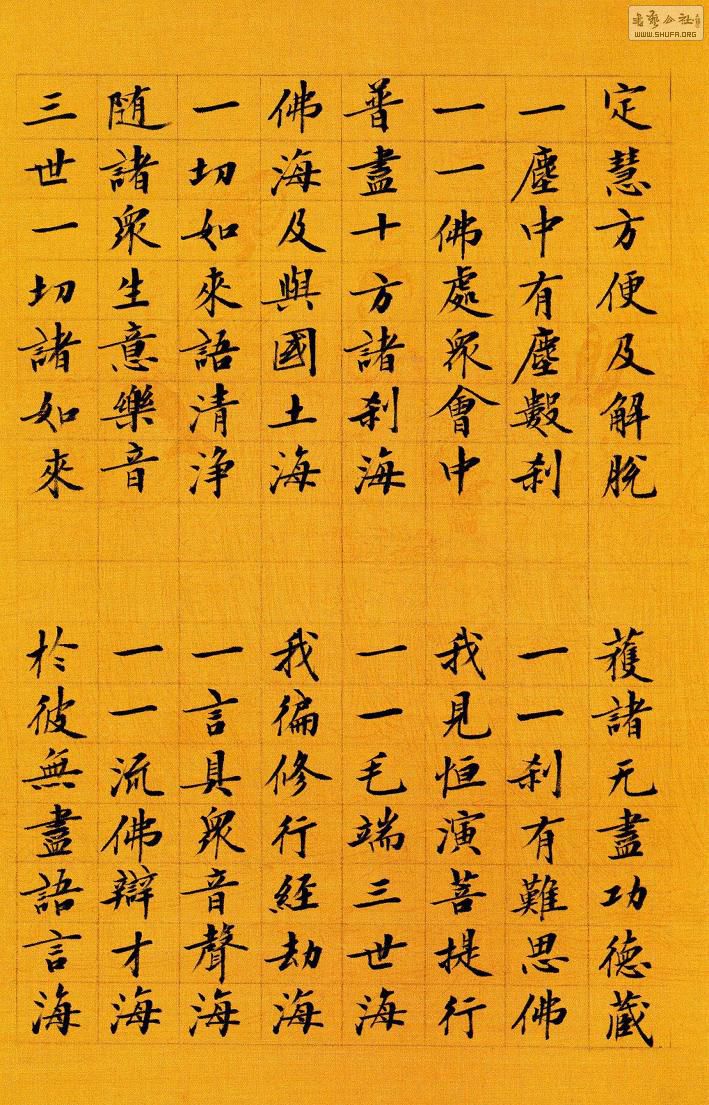 定慧方便及解脫
獲諸无盡功德藏
一塵中有塵數刹
一一刹有難思佛
一一佛處衆會中
我見恒演菩提行
普盡十方諸刹海
一一毛端三世海
佛海及與國土海
我徧修行經劫海
一切如來語清淨
一言具衆音聲海
随諸衆生意樂音
一一流佛辯才海
三世一切諸如來
於彼無盡語言海
WWW.SHUFA.ORG